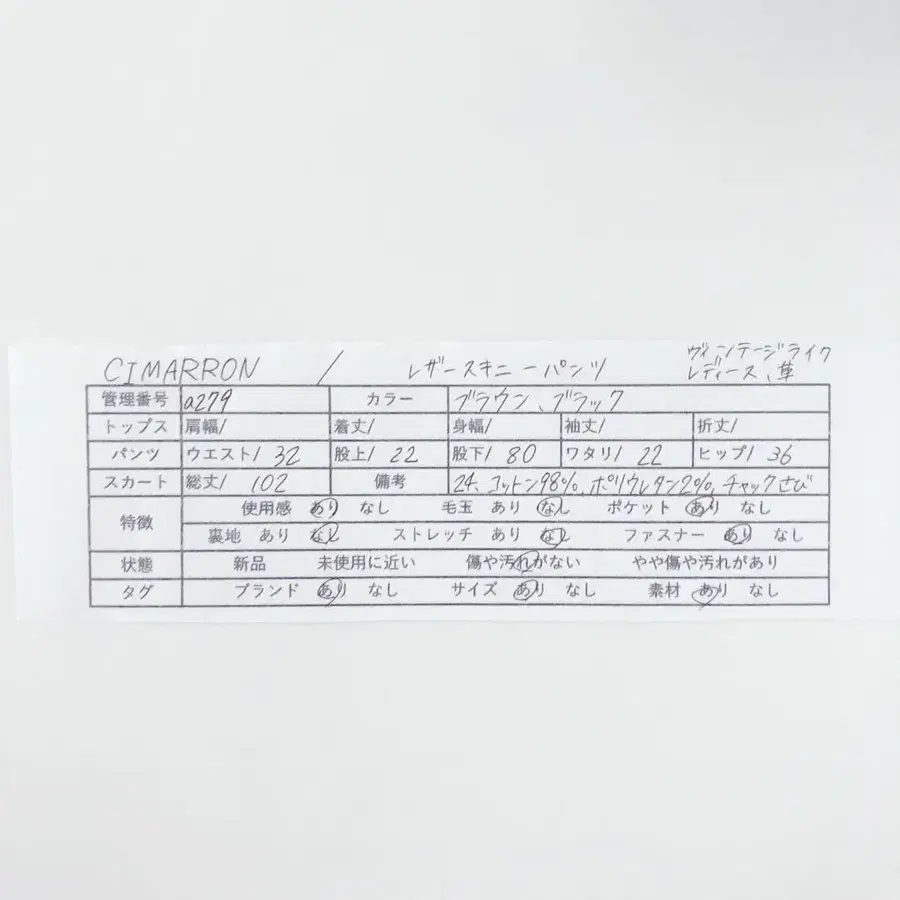 ヴィンテージライク
CIMARRON / レザースキニーパンツ レディース、革
管理番号 a279 カラー ブラウン、ブラック
トップス 肩幅/ 着丈/ 身幅/ 袖丈/ 折丈/
パンツ ウエスト/ 32 股上/ 22 股下/ 80 ワタリ/ 22 ヒップ/ 36
スカート 総丈/ 102 備考 24、コットン98%、ポリウレタン2%、チャックさび
特徴 使用感 あり なし 毛玉 あり なし ポケット あり なし
裏地 あり なし ストレッチ あり なし ファスナー あり なし
状態 新品 未使用に近い 傷や汚れがない やや傷や汚れがあり
タグ ブランド あり なし サイズ あり なし 素材 あり なし